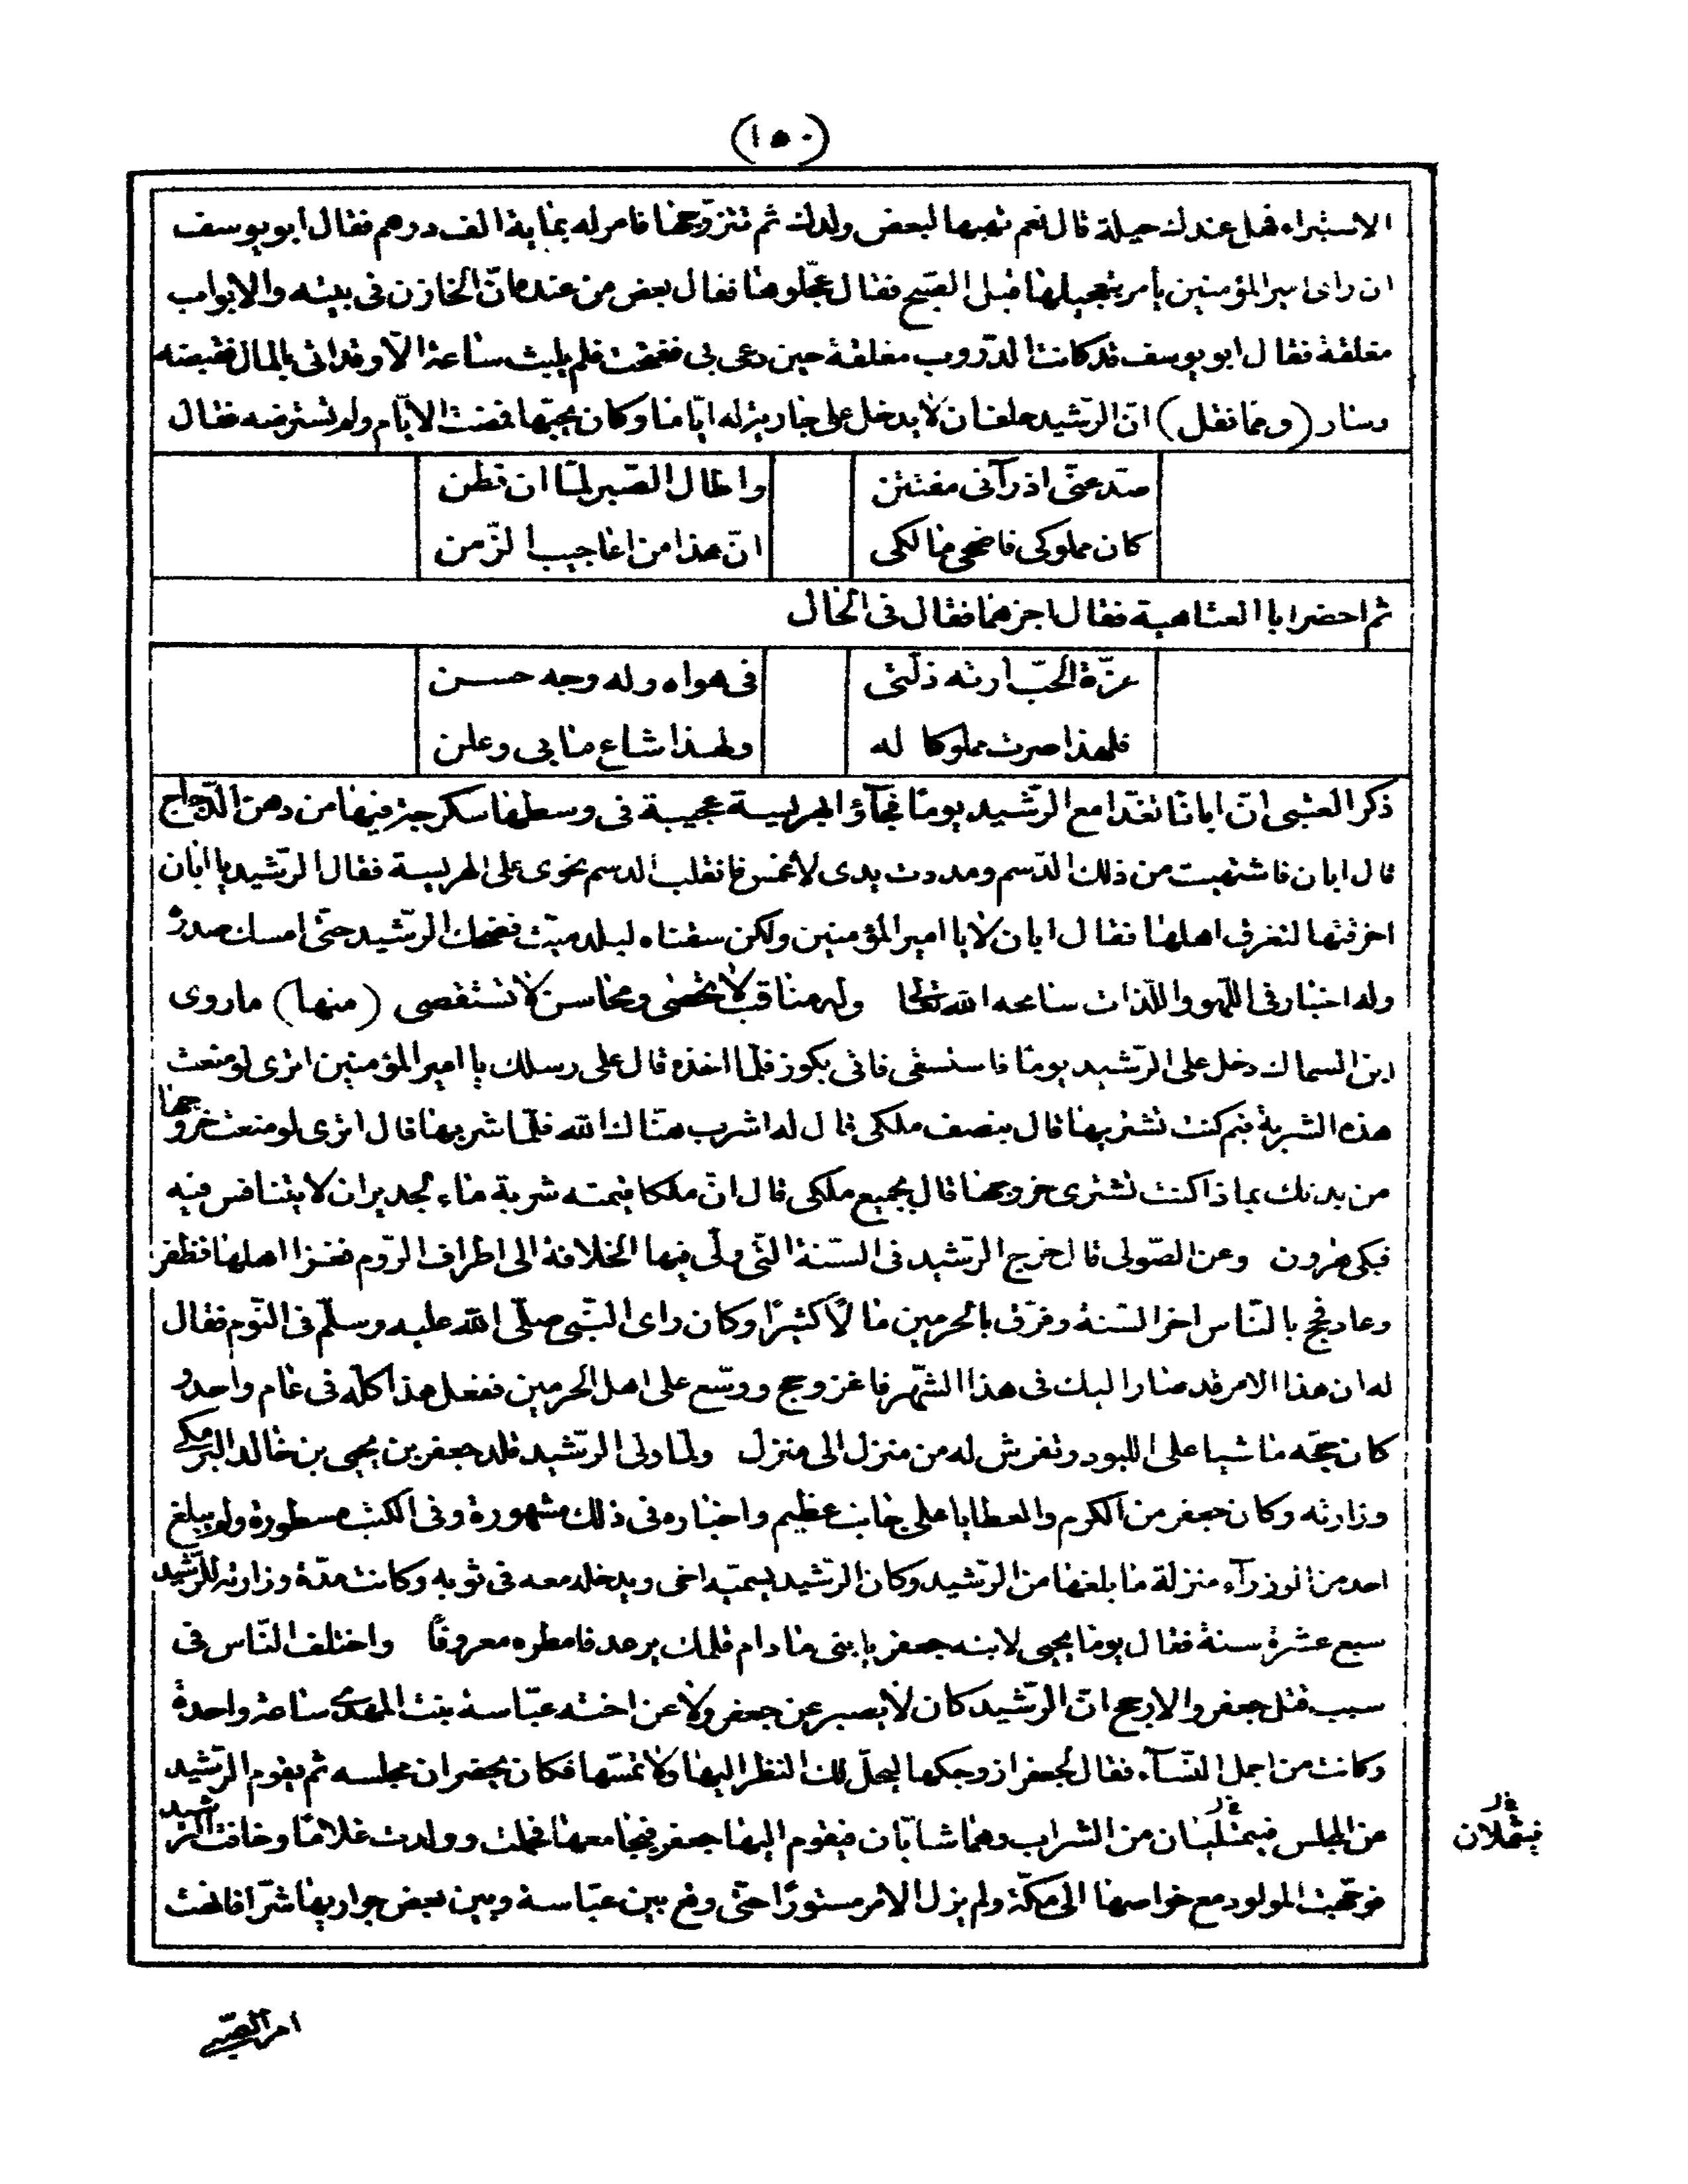 (١٥٠)
الاستبراء فهل عندك حيلة قال نعم تهبها لبعض ولدك ثم تتزوّجها فامر له بماية الف درهم فقال ابو يوسف
ان راى امير المؤمنين يأمر بتعجيلها قبل الصّبح فقال عجّلوها فقال بعض من عنده انّ الخازن فى بيته والابواب
مغلقة فقال ابو يوسف قد كانت الدّروب مغلقة حين دعى بى ففتحت فلم يلبث ساعة الّا وقد اتى بالمال فقبضه
وسار (ومما نقل) انّ الرّشيد حلف ان لا يدخل على جارية له ايّاما وكان يحبّها فمضت الايّام ولم تسترضه فقال
صدّ عنّى اذ رآنى مفتتن واطال الصّبر لمّا ان فطن
كان مملوكى فاضحى مالكى انّ هذا من اعاجيب الزّمن
ثم احضر ابا العتاهية فقال اجزهما فقال فى الحال
عزّة الحبّ ارته ذلّتى فى هواه وله وجه حسن
فلهذا صرت مملوكا له ولهذا شاع ما بى وعلن
ذكر العتبى انّ ابانا تغدّا مع الرّشيد يوما فجآؤا بهريسة عجيبة فى وسطها سكرجة فيها من دهن الدّجاج
قال ابان فاشتهيت من ذلك الدّسم ومددت يدى لاغمس فانقلب الدسم نحوى على الهريسة فقال الرّشيد يا ابان
اخرقتها لتغرق اهلها فقال ابان لا يا امير المؤمنين ولكن سقناه لبلد ميّت فضحك الرّشيد حتّى امسك صدره
وله اخبار فى اللّهو واللّذات سامحه الله تعالى وله مناقب لا تحصى ومحاسن لا تستقصى (منها) ما روى
ابن السماك دخل على الرّشيد يومًا فاستسقى فاتى بكوز فلمّا اخذه قال على رسلك يا امير المؤمنين اترى لو منعت
هذه الشربة فبم كنت تشتريها قال بنصف ملكى قال له اشرب هنّاك الله فلمّا شربها قال اترى لو منعت خروجها
من بدنك بماذا كنت تشترى خروجها قال بجميع ملكى قال انّ ملكا قيمته شربة ماء لجدير ان لا يتنافس فيه
فبكى هرون وعن الصّولى قال خرج الرّشيد فى السّنة الّتى ولّى فيها الخلافة الى اطراف الرّوم فغزا اهلها فظفر
وعاد فحج بالنّاس اخر السّنة وفرّق بالحرمين مالًا كثيرًا وكان راى النّبى صلّى الله عليه وسلّم فى النّوم فقال
له ان هذا الامر قد صار اليك فى هذا الشّهر فاغز وحج ووسّع على اهل الحرمين ففعل هذا كلّه فى عام واحد و
كان حجّه ماشيا على اللبود وتفرش له من منزل الى منزل ولما ولى الرّشيد قلد جعفر بن يحيى بن خالد البرمكى
وزارته وكان جعفر من الكرم والعطايا على جانب عظيم واخباره فى ذلك مشهورة وفى الكتب مسطورة ولم يبلغ
احد من الوزرآء منزلة ما بلغها من الرّشيد وكان الرّشيد يسمّيه اخى ويدخله معه فى ثوبه وكانت مدّة وزارته للرّشيد
سبع عشرة سنة فقال يوما يحيى لابنه جعفر يا بنى ما دام قلمك يرعد فامطره معروفًا واختلف النّاس فى
سبب قتل جعفر والارجح انّ الرّشيد كان لا يصبر عن جعفر ولا عن اخته عبّاسة بنت المهدى ساعة واحدة
وكانت من اجمل النّسآء فقال لجعفر ازوجكها ليحلّ لك النظر اليها ولا تمسّها فكان يحضران مجلسه ثم يقوم الرّشيد
من المجلس فيمتليان من الشراب وهما شابّان فيقوم اليها جعفر فيجامعها فحملت وولدت غلامًا وخافت الرّشيد
فوجّهت المولود مع خواصها الى مكّة ولم يزل الامر مستورًا حتّى وقع بين عبّاسة وبين بعض جواريها شرّ افانهت
فيثملان
امر الصّبى